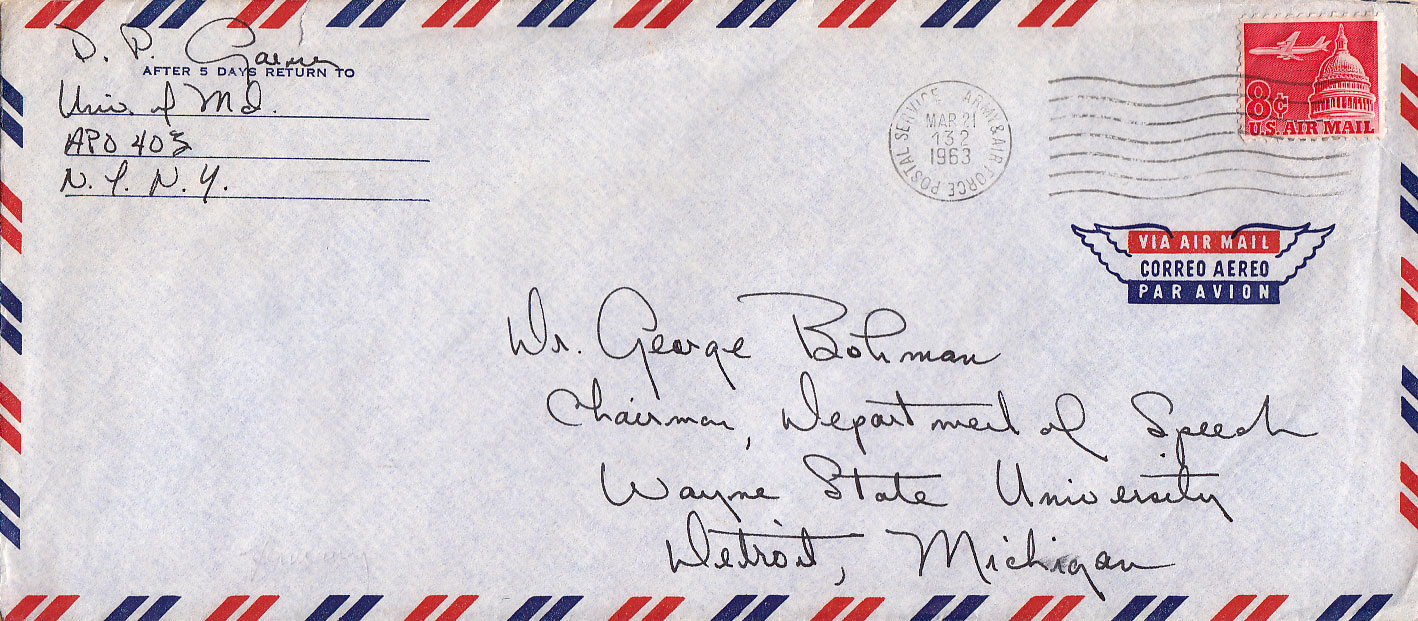 D. P. Garner
AFTER 5 DAYS RETURN TO
Univ. of Md.
APO 403
N. Y. N. Y.
ARMY & AIR FORCE POSTAL SERVICE
MAR 21
132
1963
8¢
U.S. AIR MAIL
VIA AIR MAIL
CORREO AEREO
PAR AVION
Dr. George Bohman
Chairman, Department of Speech
Wayne State University
Detroit, Michigan